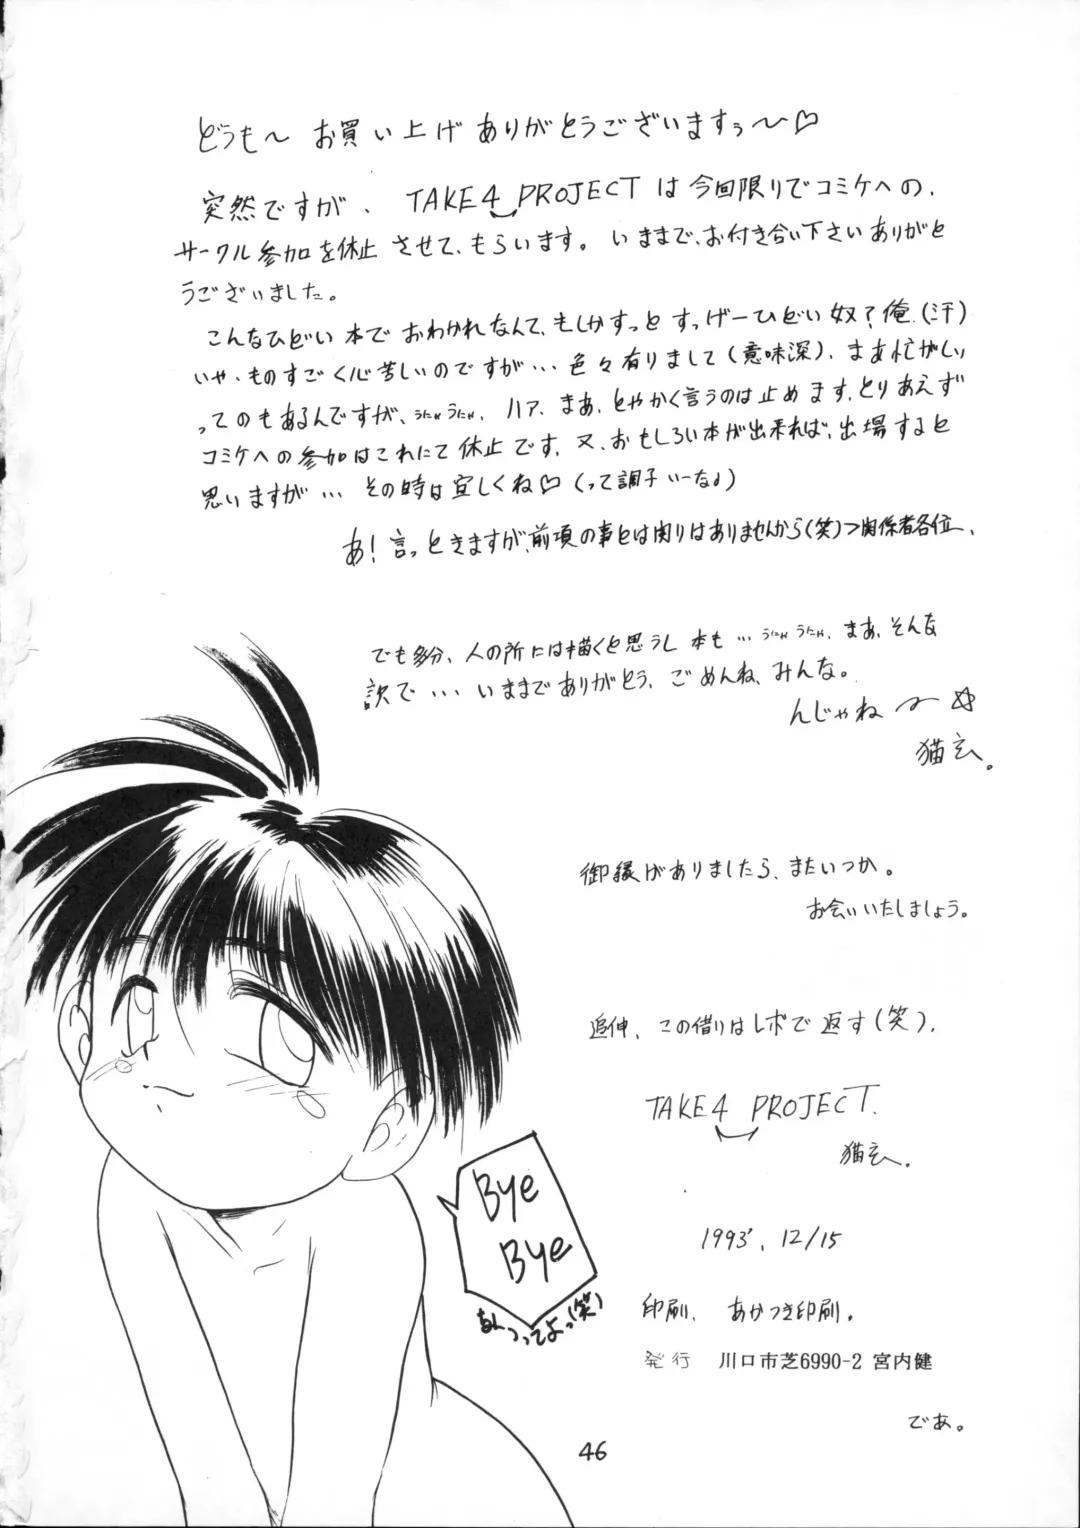 どうも〜 お買い上げ ありがとうございますぅ〜♡
突然ですが、 TAKE4 PROJECT は今回限りでコミケへの、
サークル参加を休止 させて、もらいます。 いままで、お付き合い下さいありがと
うございました。
こんなひどい 本で おわかれなんて、もしかすっと すっげーひどい 奴？俺、(汗)
いや、ものすごく心苦しいのですが… 色々有りまして(意味深)、まあ忙がしい
ってのもあるんですが、うにゃうにゃ、ハア、まあ、とやかく言うのは止めます、とりあえず
コミケへの参加はこれにて休止です、又、おもしろい本が出来れば、出場すると
思いますが… その時は宜しくね♡ (って調子いーな♪)
あ！言っときますが、前項の事とは関りはありませんから(笑)＞関係者各位、
でも多分、人の所には描くと思うし 本も…うにゃうにゃ、まあ、そんな
訳で… いままでありがとう、ごめんね、みんな。
んじゃね〜☆
猫玄。
御縁がありましたら、またいつか。
お会いいたしましょう。
追伸、この借りはレボで返す(笑)、
TAKE4 PROJECT.
猫玄。
Bye
Bye
つってよっ(笑)
1993'. 12/15
印刷、 あかつき印刷。
発行 川口市芝6990-2 宮内健
であ。
46